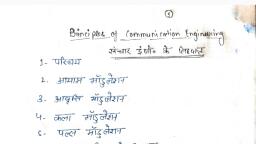 1
Principles of Communication Engineering
संचार इंजी० के सिद्धान्त
1- परिचय
2- आयाम मॉडुलेशन
3- आवृत्ति मॉडुलेशन
4- कला मॉडुलेशन
5- पल्स मॉडुलेशन